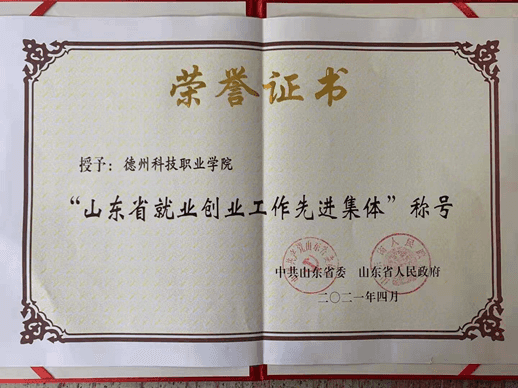 荣誉证书
授予：德州科技职业学院
“山东省就业创业工作先进集体”称号
中共山东省委 山东省人民政府
二〇二一年四月